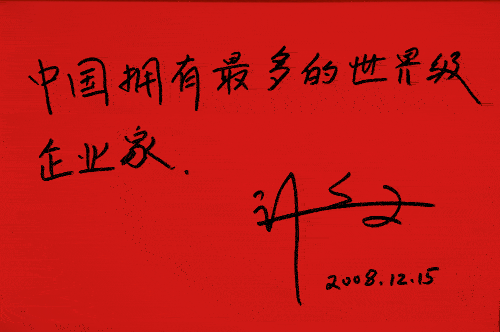 中国拥有最多的世界级
企业家.
2008.12.15